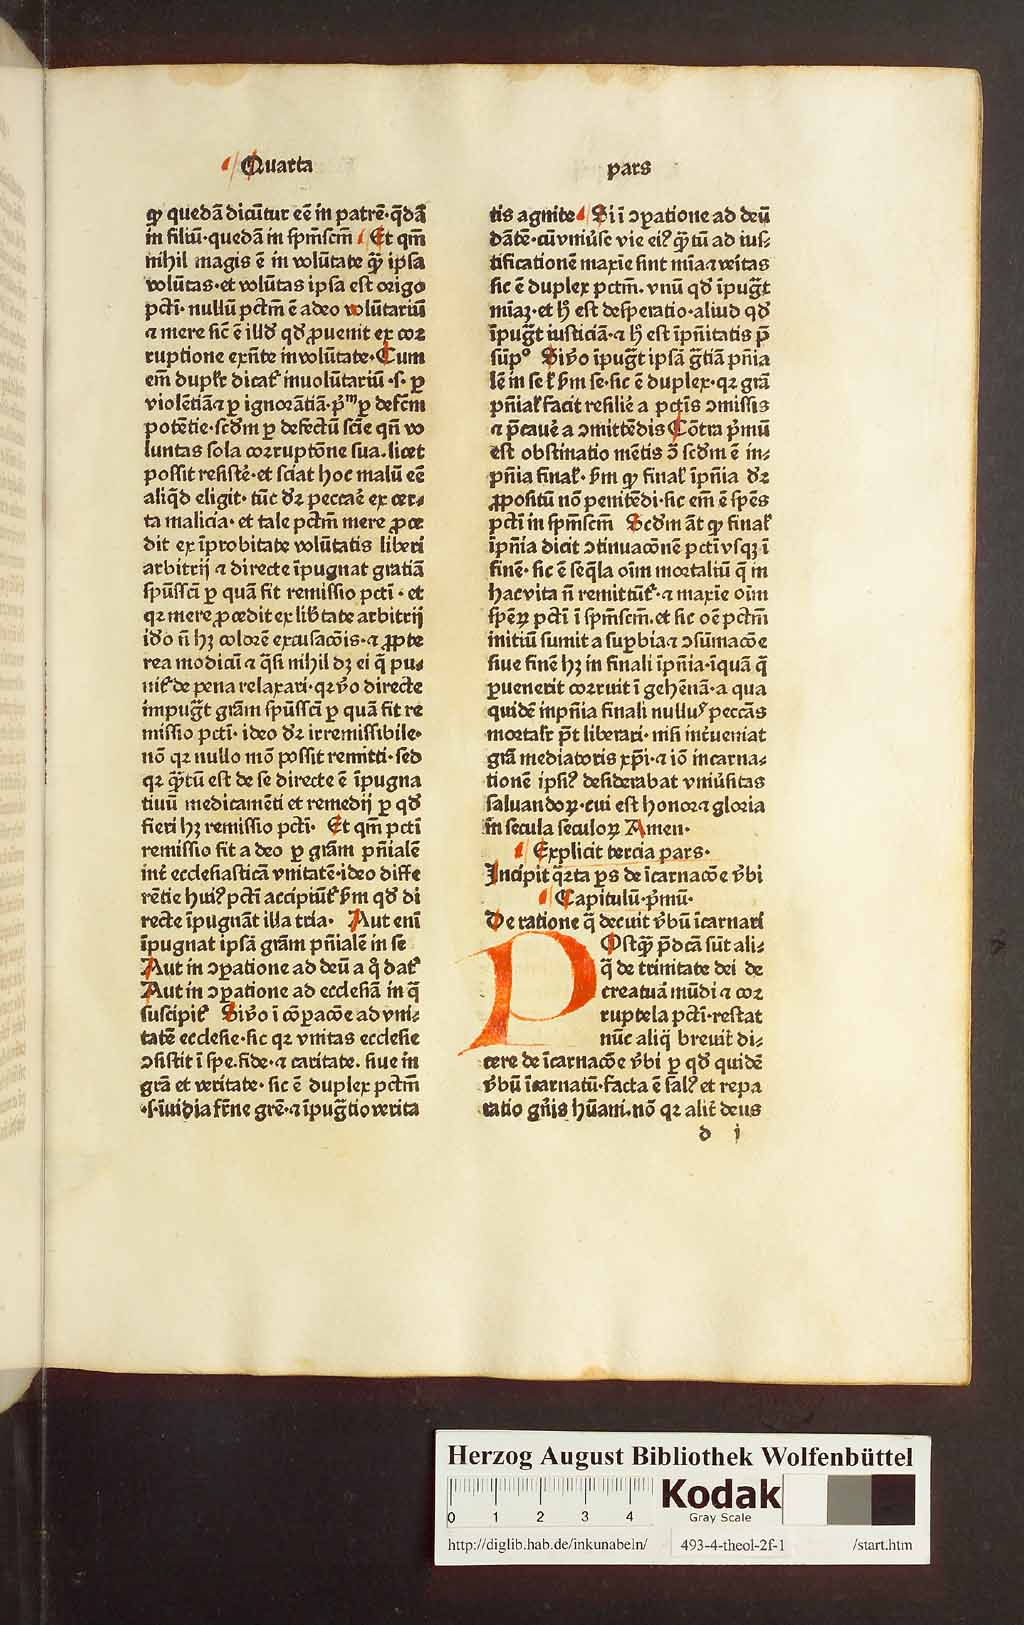 Quarta pars
ꝙ quedā dicūtur eē in patrē·q̄dā
in filiū·quedā in ſpm̄ſcm̄ Et qm̄
nihil magis ē in volūtate q̄ꝫ ipſa
volūtas·et volūtas ipſa eſt origo
pcti· nullū pctm̄ ē adeo volūtariū
⁊ mere ſic ē illð qð ꝓuenit ex coꝛ
ruptione exn̄te in volūtate·Cum
em̄ duplr̄ dicat᷑ inuolūtariū ·s· ꝑ
violētiā⁊ ꝑ ignorātiā·p̄ᵐ ꝑ defcm̄
potētie·ſcðm ꝑ defectū ſcīe qn̄ vo
luntas ſola coꝛruptōne ſua. licet
poſſit reſiſtē·et ſciat hoc malū eē
aliqð eligit· tūc ðꝛ peccaē ex cer⸗
ta malicia· et tale pctm̄ mere ꝓce
dit ex īprobitate volūtatis liberi
arbitrij ⁊ directe īpugnat gratiā
ſpūſſcī ꝑ quā fit remiſſio pcti · et
qꝛ mere ꝓcedit ex lib̄tate arbitrij
iðo n̄ hꝫ coloꝛē excuſacōis·⁊ ꝓpte
rea modicū ⁊ q̄ſi nihil dꝫ ei q̄ pu⸗
nit᷑ de pena relaxari·qꝛ v̄o directe
impug̅t grām ſpūſſcī ꝑ quā fit re
miſſio pcti· ideo ðꝛ irremiſſibile·
nō qꝛ nullo mō poſſit remitti·ſed
qꝛ q̄ꝫtū eſt de ſe directe ē īpugna
tiuū medicamēti et remedij ꝑ qð
fieri hꝫ remiſſio pcti· Et qm̄ pcti
remiſſio fit a deo ꝑ grām pn̄ialē
int̄ eccleſiaſticā vnitatē·ideo diffe
rētie huiꝰ pcti accipiūt᷑ ẜm qð di
recte īpugnāt illa tria· Aut enī
īpugnat ipſā grām pn̄ialē in ſe
Aut in ↄꝑatione ad deū a q̊ dat᷑
Aut in ↄꝑatione ad eccleſiā in q̄
ſuſcipit᷑ Siv̄o ī cōꝑacōe ad vni⸗
tatē eccleſie·ſic qꝛ vnitas eccleſie
ↄſiſtit ī ſpe.fide·⁊ caritate. ſiue in
grā et veritate· ſic ē duplex pctm̄
·s·īuidia fr̄ne grē·⁊ īpug̅tio verita
tis agnite Si ī ↄꝑatione ad deū
dātē·cū vniūſe vie eiꝰ q̄ꝫtū ad iuſ⸗
tificationē maxīe ſint mīa⁊ veītas
ſic ē duplex pctm̄. vnū qð īpug̅t
mīaꝫ·et h̄ eſt deſperatio·aliud qð
īpug̅t iuſticiā·⁊ h̄ eſt īpn̄itatis p̄
ſūpº Siv̄o īpug̅t ipſā g̅tiā pn̄ia
lē in ſe ł ẜm ſe·ſic ē duplex·qꝛ grā
pn̄iał facit reſiliē a pctīs ↄmiſſis
⁊ p̄cauē a ↄmittēdis Cōtra p̄mū
eſt obſtinatio mētis ↄ̄ ſcðm ē in⸗
pn̄ia finał· ẜm ꝙ finał īpn̄ia ðꝛ
ꝓpoſitū nō penitēdi·ſic em̄ ē ſpēs
pcti in ſpm̄ſcm̄ Scðm āt ꝙ finał
īpn̄ia dicit ↄtinuacōnē pcti vſqꝫ ī
finē· ſic ē ſeq̄la oīm moꝛtaliū q̄ in
hac vita n̄ remittūt᷑·⁊ maxīe oīm
ſpēꝝ pcti ī ſpm̄ſcm̄.et ſic oē pctm̄
initiū ſumit a ſuꝑbia⁊ ↄſūmacōe
ſiue finē hꝫ in finali īpn̄ia·ī quā q̄
ꝑuenerit coꝛruit ī gehēnā·a qua
quidē inpn̄ia finali nulluꝰ peccās
moꝛtalr̄ p̄t liberari· niſi int̄ueniat
grā mediatoꝛis xp̄i·⁊ iō incarna⸗
tionē ipſiꝰ deſiderabat vniūſitas
ſaluandoꝝ·cui eſt honoꝛ⁊ gloꝛia
in ſecula ſeculoꝝ Amen·
Explicit tercia pars·
Incipit q̄rta ꝑs de īcarnacōe v̄bi
Capitulū·p̄mū·
De ratione q̄ decuit v̄bū īcarnari
POſtq̄ꝫ p̄dcā ſūt ali⸗
q̄ de trinitate dei de
creatuā mūdi ⁊ coꝛ
ruptela pcti·reſtat
nūc aliq̄ breuit̄ di⸗
cere de īcarnacōe v̄bi ꝑ qð quidē
v̄bū īcarnatū·facta ē ſalꝰ et repa
ratio gn̄is hūani.nō qꝛ alit̄ deus
d i
Herzog August Bibliothek Wolfenbüttel
0 1 2 3 4
Kodak
Gray Scale
http://diglib.hab.de/inkunabeln/ 493-4-theol-2f-1 /start.htm